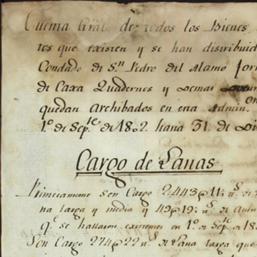 Cuenta Gral. de todos los Bienes
tes que existen y se han distribuid
Condado de Sn. Pedro del Alamo for
de Caxa Quadernos y Demas
quedan Archibados en esta Admon.
1º. de Septe. de 1802. hasta 31 de Di
Cargo de Lanas
Primeramente Son Cargo 2443@11
na larga y media y 4
q. se hallaron existentes en 1º. de Sep. de 18
Son Cargo 274@22 de Lana larga que